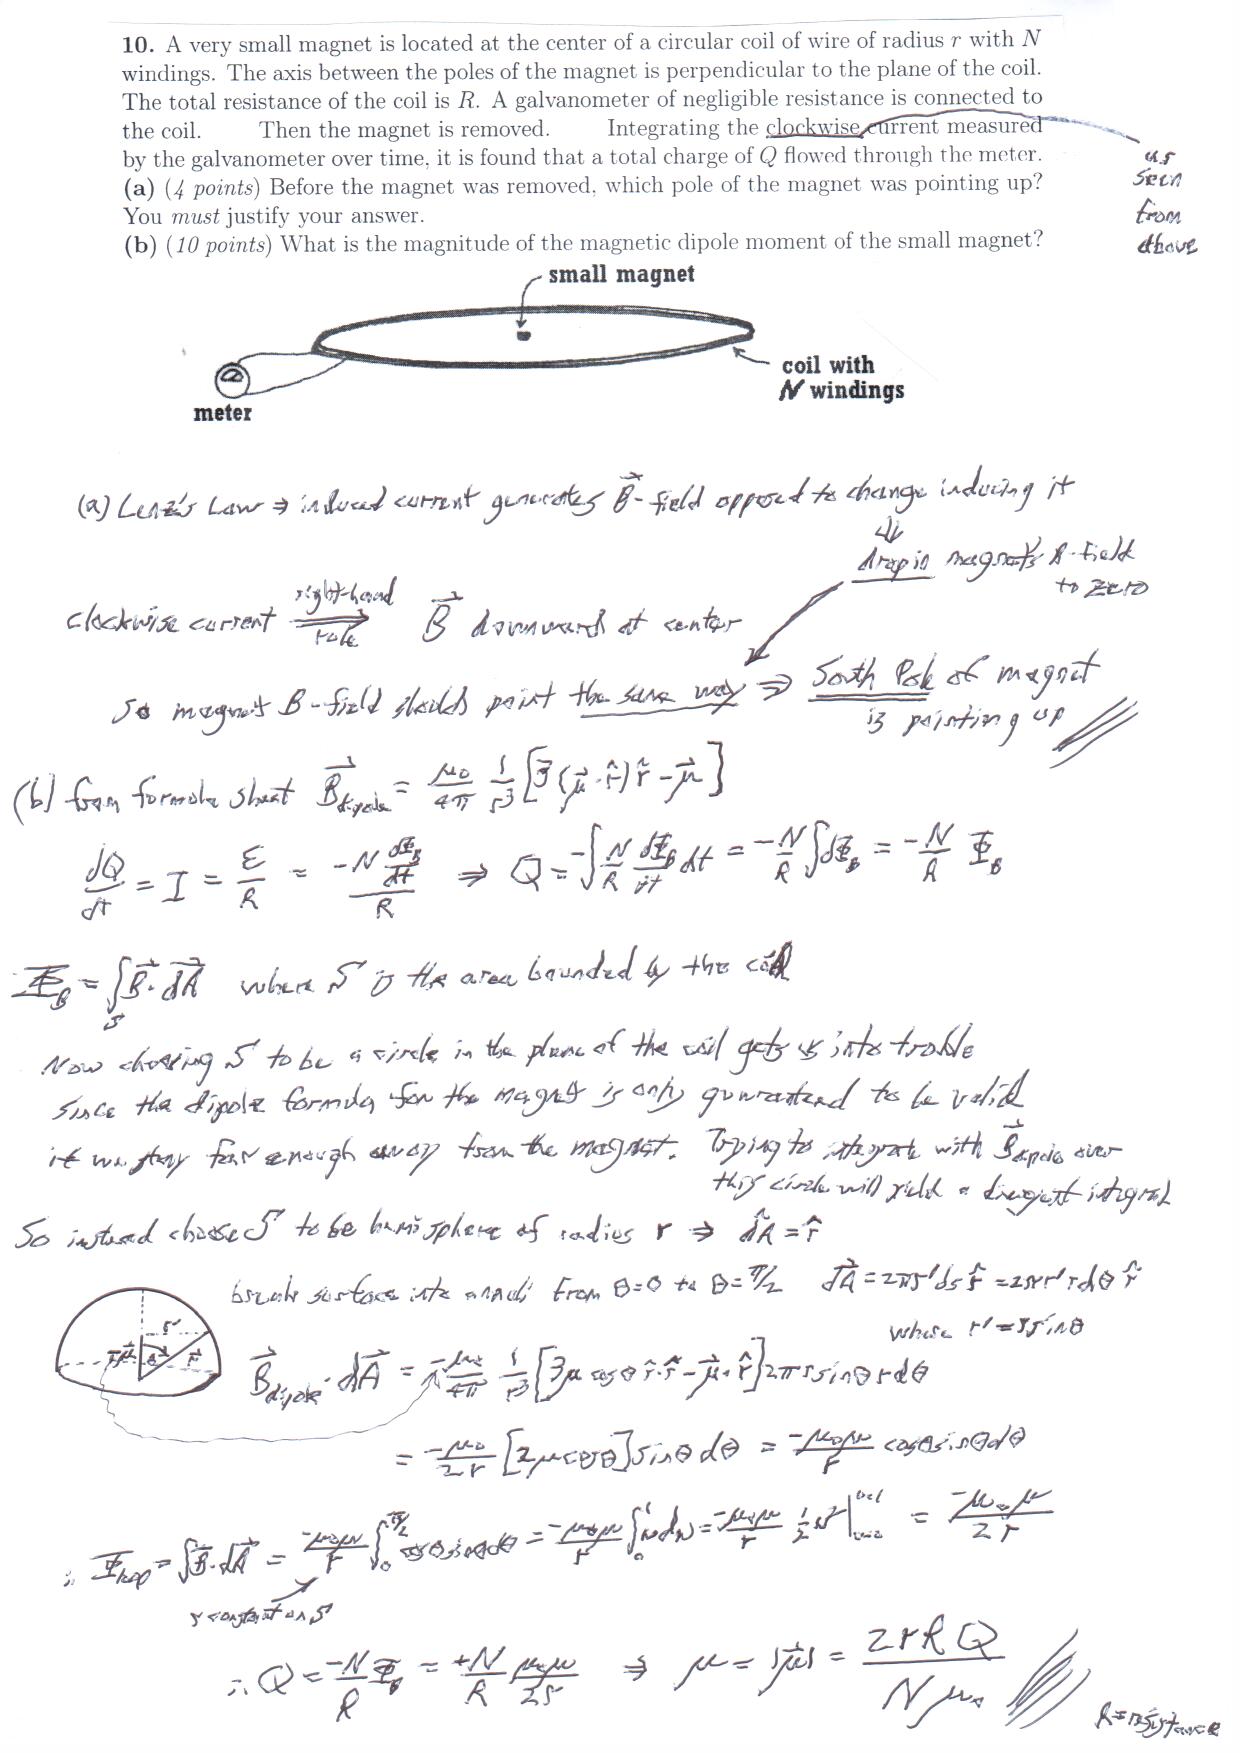 10. A very small magnet is located at the center of a circular coil of wire of radius r with N
windings. The axis between the poles of the magnet is perpendicular to the plane of the coil.
The total resistance of the coil is R. A galvanometer of negligible resistance is connected to
the coil. Then the magnet is removed. Integrating the clockwise current measured
by the galvanometer over time, it is found that a total charge of Q flowed through the meter.
(a) (4 points) Before the magnet was removed, which pole of the magnet was pointing up?
You must justify your answer.
(b) (10 points) What is the magnitude of the magnetic dipole moment of the small magnet?
as
seen
from
above
small magnet
coil with
N windings
meter
(a) Lenz's Law ⇒ induced current generates B⃗-field opposed to change inducing it
⇓
drop in magnet's B-field
to zero
clockwise current right-hand rule ⇒ B⃗ downward at center
so magnet B-field should point the same way ⇒ South Pole of magnet
is pointing up
(b) from formula sheet B⃗dipole = μ₀/4π 1/r³ [3(μ⃗·r̂)r̂ - μ⃗]
dQ/dt = I = ε/R = -N dΦB/dt / R ⇒ Q = -∫ N/R dΦB/dt dt = -N/R ∫dΦB = -N/R ΦB
ΦB = ∫S B⃗·dA⃗ where S is the area bounded by the coil
Now choosing S to be a circle in the plane of the coil gets us into trouble
since the dipole formula for the magnet is only guaranteed to be valid
if we stay far enough away from the magnet. Trying to integrate with B⃗dipole over
this circle will yield a divergent integral
So instead choose S to be hemisphere of radius r ⇒ dÂ = r̂
break surface into annuli from θ=0 to θ=π/2 dA⃗ = 2πr'ds r̂ = 2πr' r dθ r̂
where r' = r sinθ
B⃗dipole·dA⃗ = -μ₀/4π 1/r³ [3μ cosθ r̂·r̂ - μ⃗·r̂] 2πr sinθ r dθ
= -μ₀/2r [2μ cosθ] sinθ dθ = -μ₀μ/r cosθ sinθ dθ
∴ Φloop = ∫B⃗·dA⃗ = -μ₀μ/r ∫₀^π/2 cosθ sinθ dθ = -μ₀μ/r ∫₀¹ u du = -μ₀μ/r 1/2 u² |u=0 u=1 = -μ₀μ/2r
r constant on S
∴ Q = -N/R ΦB = +N/R μ₀μ/2r ⇒ μ = |μ⃗| = 2rRQ/Nμ₀
R = resistance